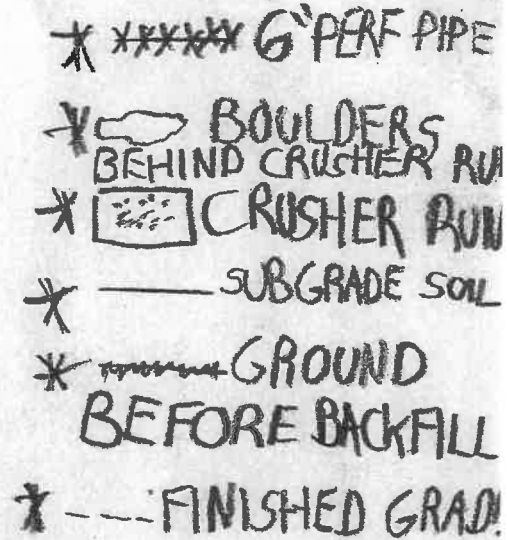 6" PERF PIPE
BOULDERS
BEHIND CRUSHER RU
CRUSHER RUN
SUBGRADE SOIL
GROUND
BEFORE BACKFILL
FINISHED GRAD